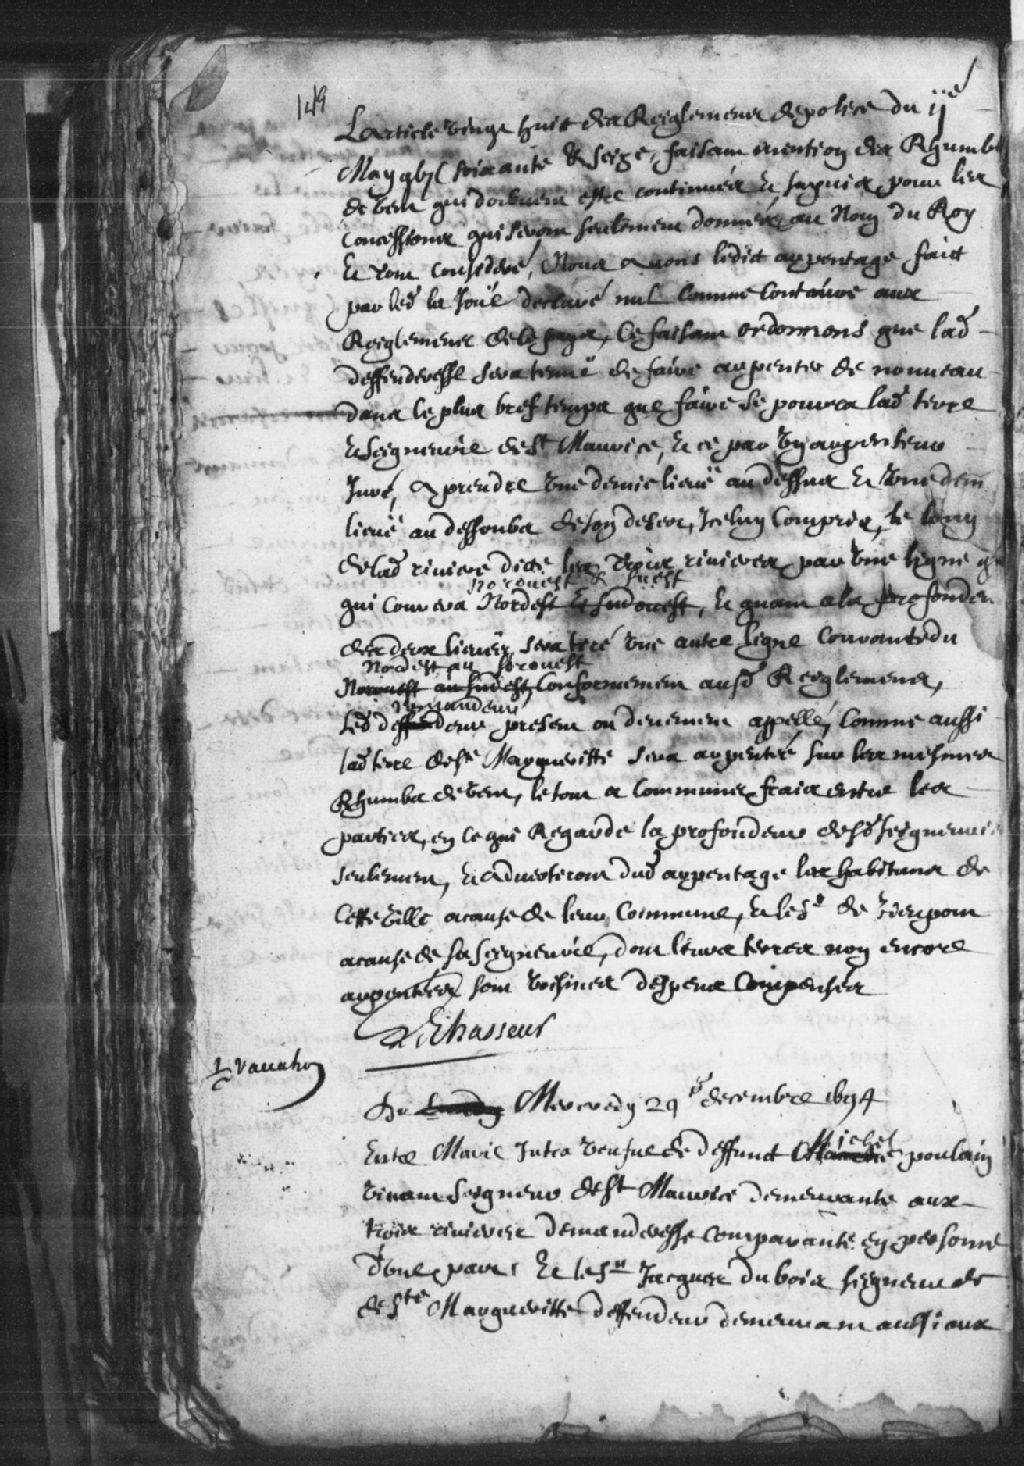 149
L'article vingt huit des Reiglemens de police du ije
May gbjc soixante & seize, faisant mention des Rhumbs
de vent qui doibvent estre continués et suyvis pour les
concessions qui seront seulement données au Nom du Roy
Et tout consideré, Nous avons ledict arpentage faict
par led la Joüe declaré nul comme contraire aux
Reiglemens de ce pays, Ce faisant ordonnons que lad
deffenderesse sera tenuë de faire arpenter de nouveau
dans le plus bref temps que faire se pourra lad terre
et seigneurie de St Maurice, et ce par un arpenteur
Juré, a prendre une demie lieuë au dessus et une demi
lieuë au dessoubs de son desert, Iceluy compris, le long
de lad riviere dicte les trois rivieres par une ligne
norouest & suest
qui courera Nordest et sudouest, et quant a la profondeur
des deux lieües, sera tiré une autre ligne courante du
Nordest au sorouest
Norouest au sudest, Conformement ausd Reiglemens,
demandeur
Led deffendeur present ou deuement appellé, comme aussi
lad terre de Ste Margueritte sera arpentée sur les mesmes
Rhumbs de vent, le tout a communs fraix entre les
parties, en ce qui Regarde la profondeur desd seigneuries
seulement, et advertiront dud arpentage les habitans de
cette ville a cause de leur Commune, et le Sr de
a cause de sa seigneurie, dont leurs terres non encore
arpentées sont voisines despens compensés
LeChasseur
Du Lundy Mercredy 29e decembre 1694
Michel
Entre Marie Jutra veufue de deffunct Maurice poulain
vivant seigneur de St Maurice demeurante aux
trois rivieres demanderesse comparante en personne
d'une part Et le Sr Jacques dubois seigneur de
de Ste Margueritte deffendeur demeurant aussi aux